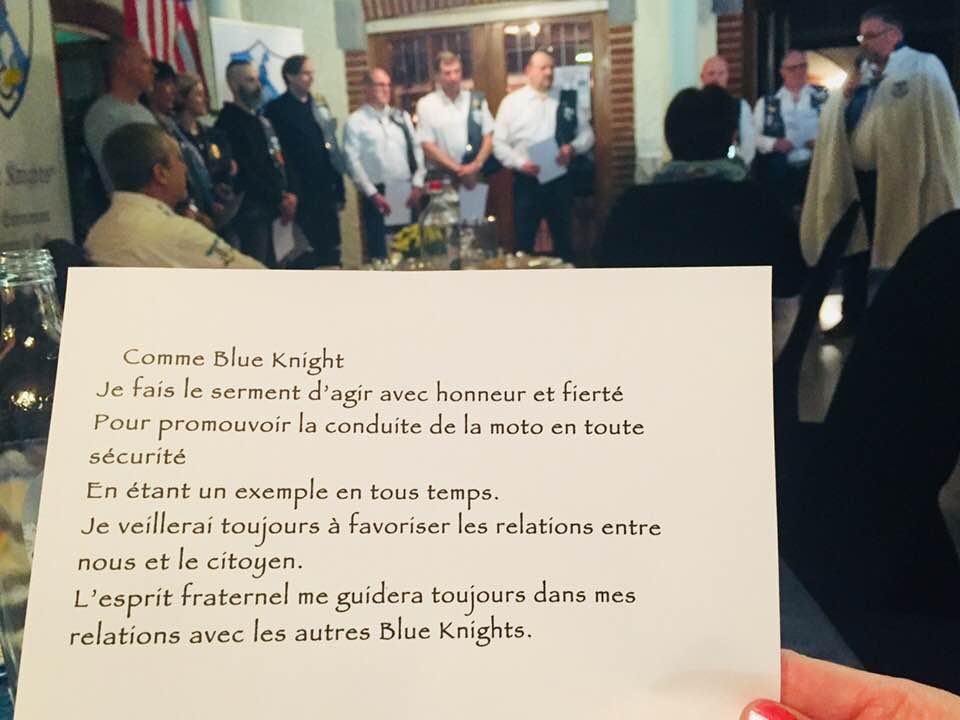 Comme Blue Knight
Je fais le serment d'agir avec honneur et fierté
Pour promouvoir la conduite de la moto en toute
sécurité
En étant un exemple en tous temps.
Je veillerai toujours à favoriser les relations entre
nous et le citoyen.
L'esprit fraternel me guidera toujours dans mes
relations avec les autres Blue Knights.